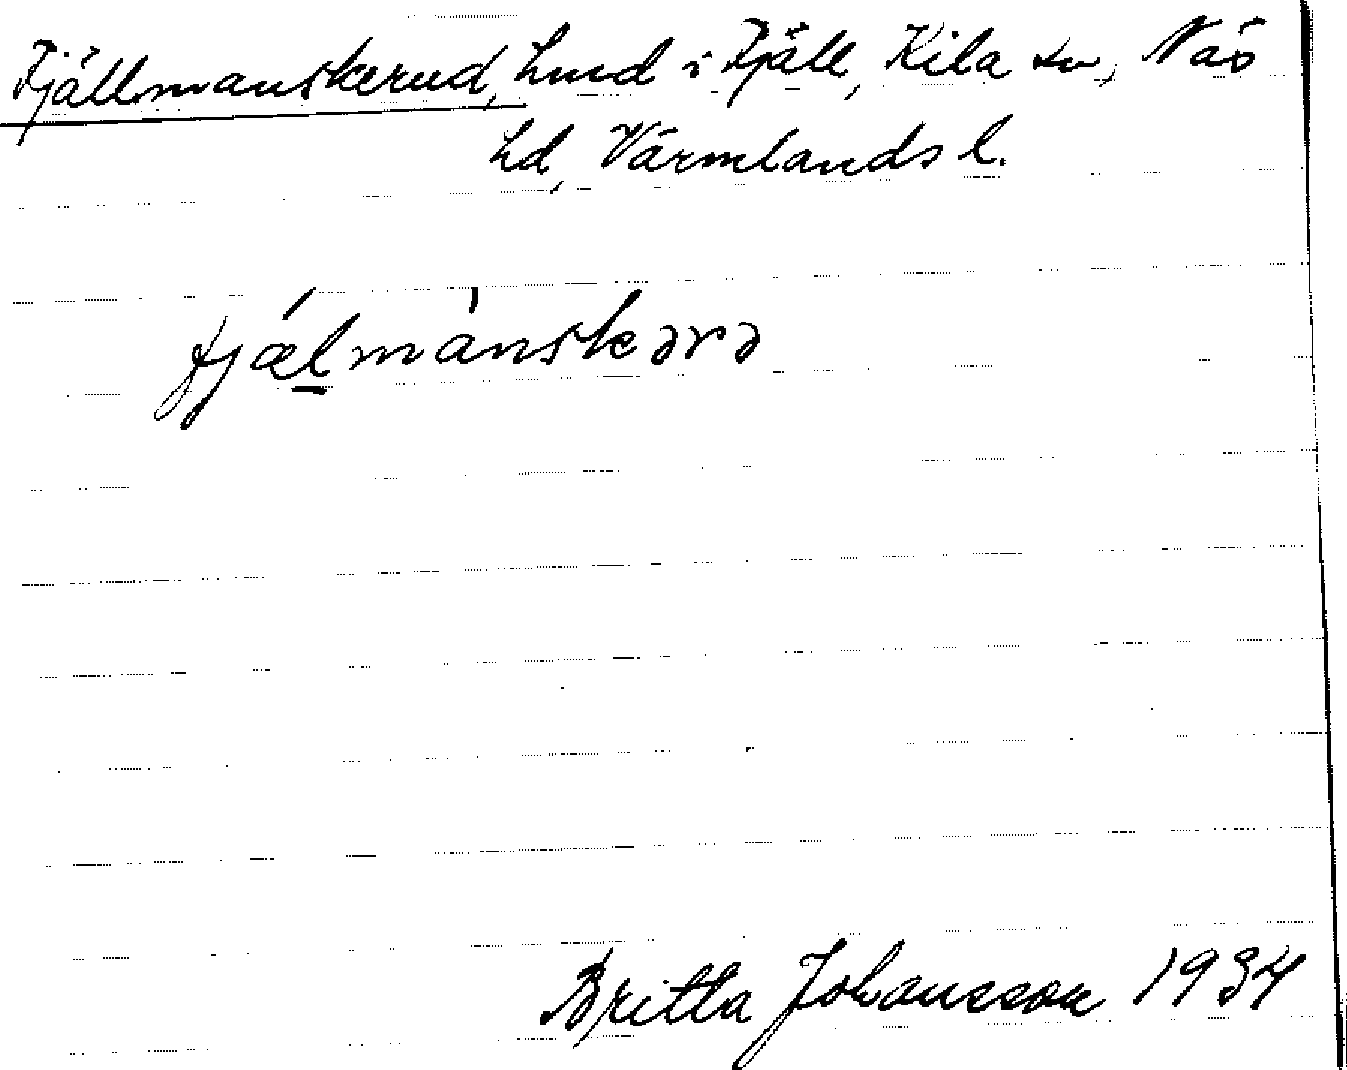 Fjällmanskerud, Lund i Fjäll, Kila sn, Näs
hd, Värmlands l.
fjǽlmànskərə
Britta Johansson 1934